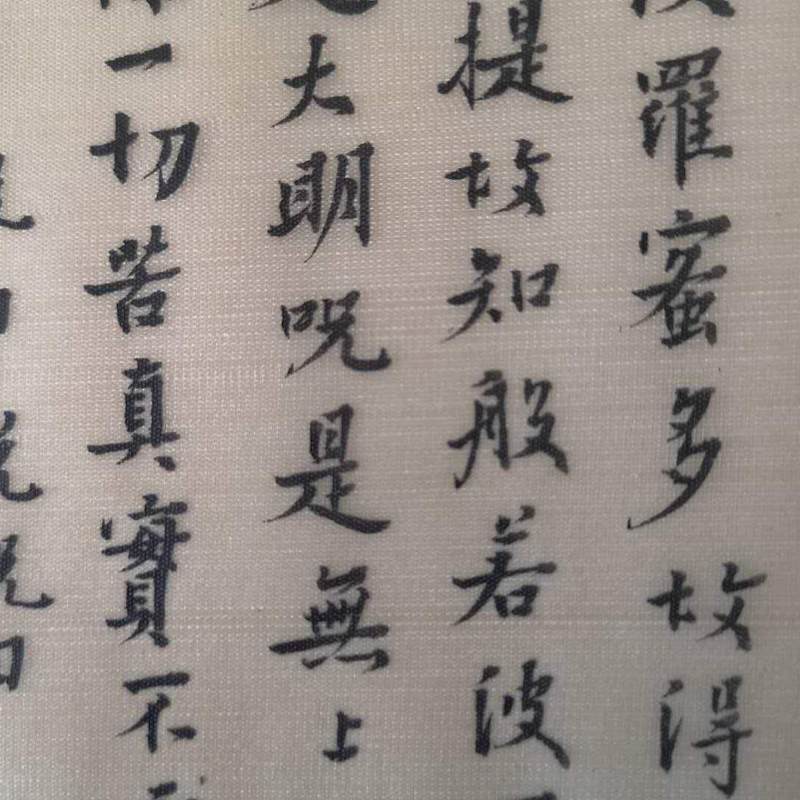 羅蜜多故得
提故知般若波
大明咒是無上
一切苦真實不